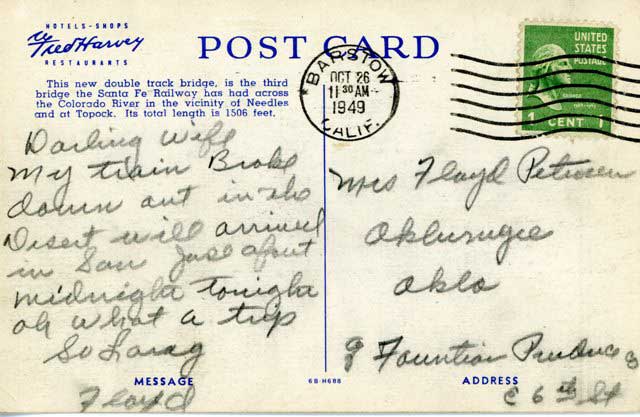 HOTELS - SHOPS
Fred Harvey
RESTAURANTS
POST CARD
This new double track bridge, is the third
bridge the Santa Fe Railway has had across
the Colorado River in the vicinity of Needles
and at Topock. Its total length is 1506 feet.
BARSTOW
OCT 26
11 30 AM
1949
CALIF.
UNITED
STATES
POSTAGE
1 CENT 1
Darling Wife
My train Broke
down out in the
Desert will arrived
in San Jose about
midnight tonight
oh what a trip
So Long
Floyd
Mrs Floyd Petersen
Okla
% Fountian Produce Co
E 6th St
MESSAGE
6B-H688
ADDRESS